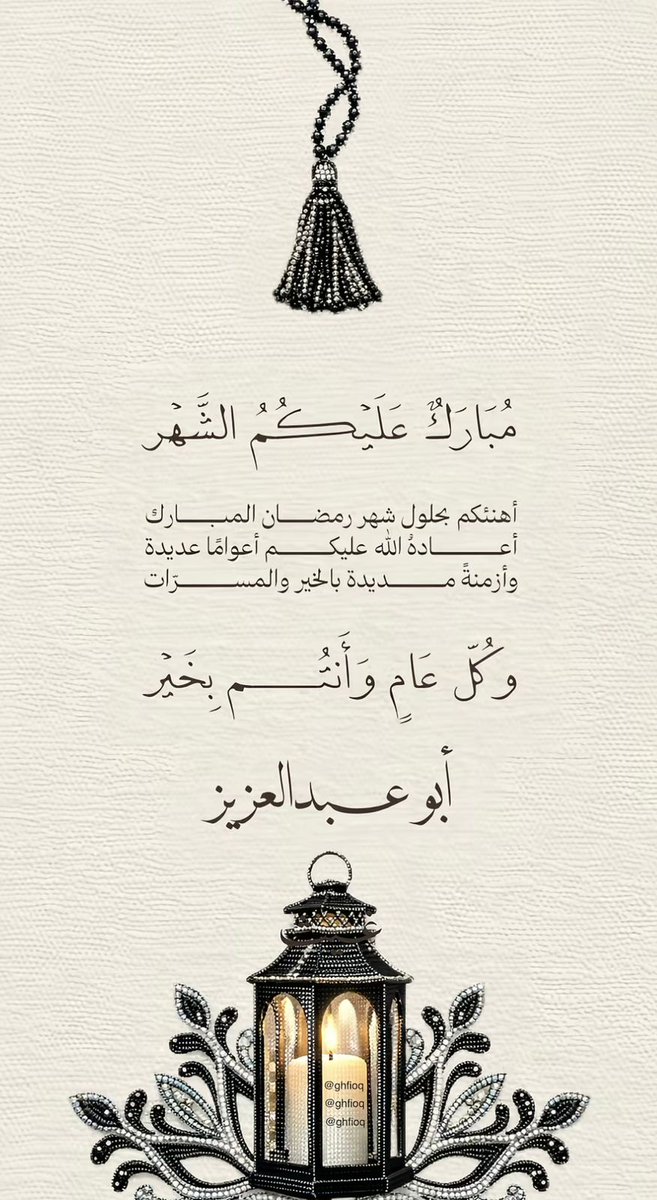 مُبَارَكٌ عَلَيْكُمُ الشَّهْر
أهنئكم بحلول شهر رمضـــان المبـــارك
أعـــادهُ الله عليكـــم أعوامًا عديدة
وأزمنةً مـــديدة بالخير والمســـرّات
وكُلّ عَامٍ وَأَنتُـــم بِخَيْر
أبو عبدالعزيز
@ghfioq
@ghfioq
@ghfioq